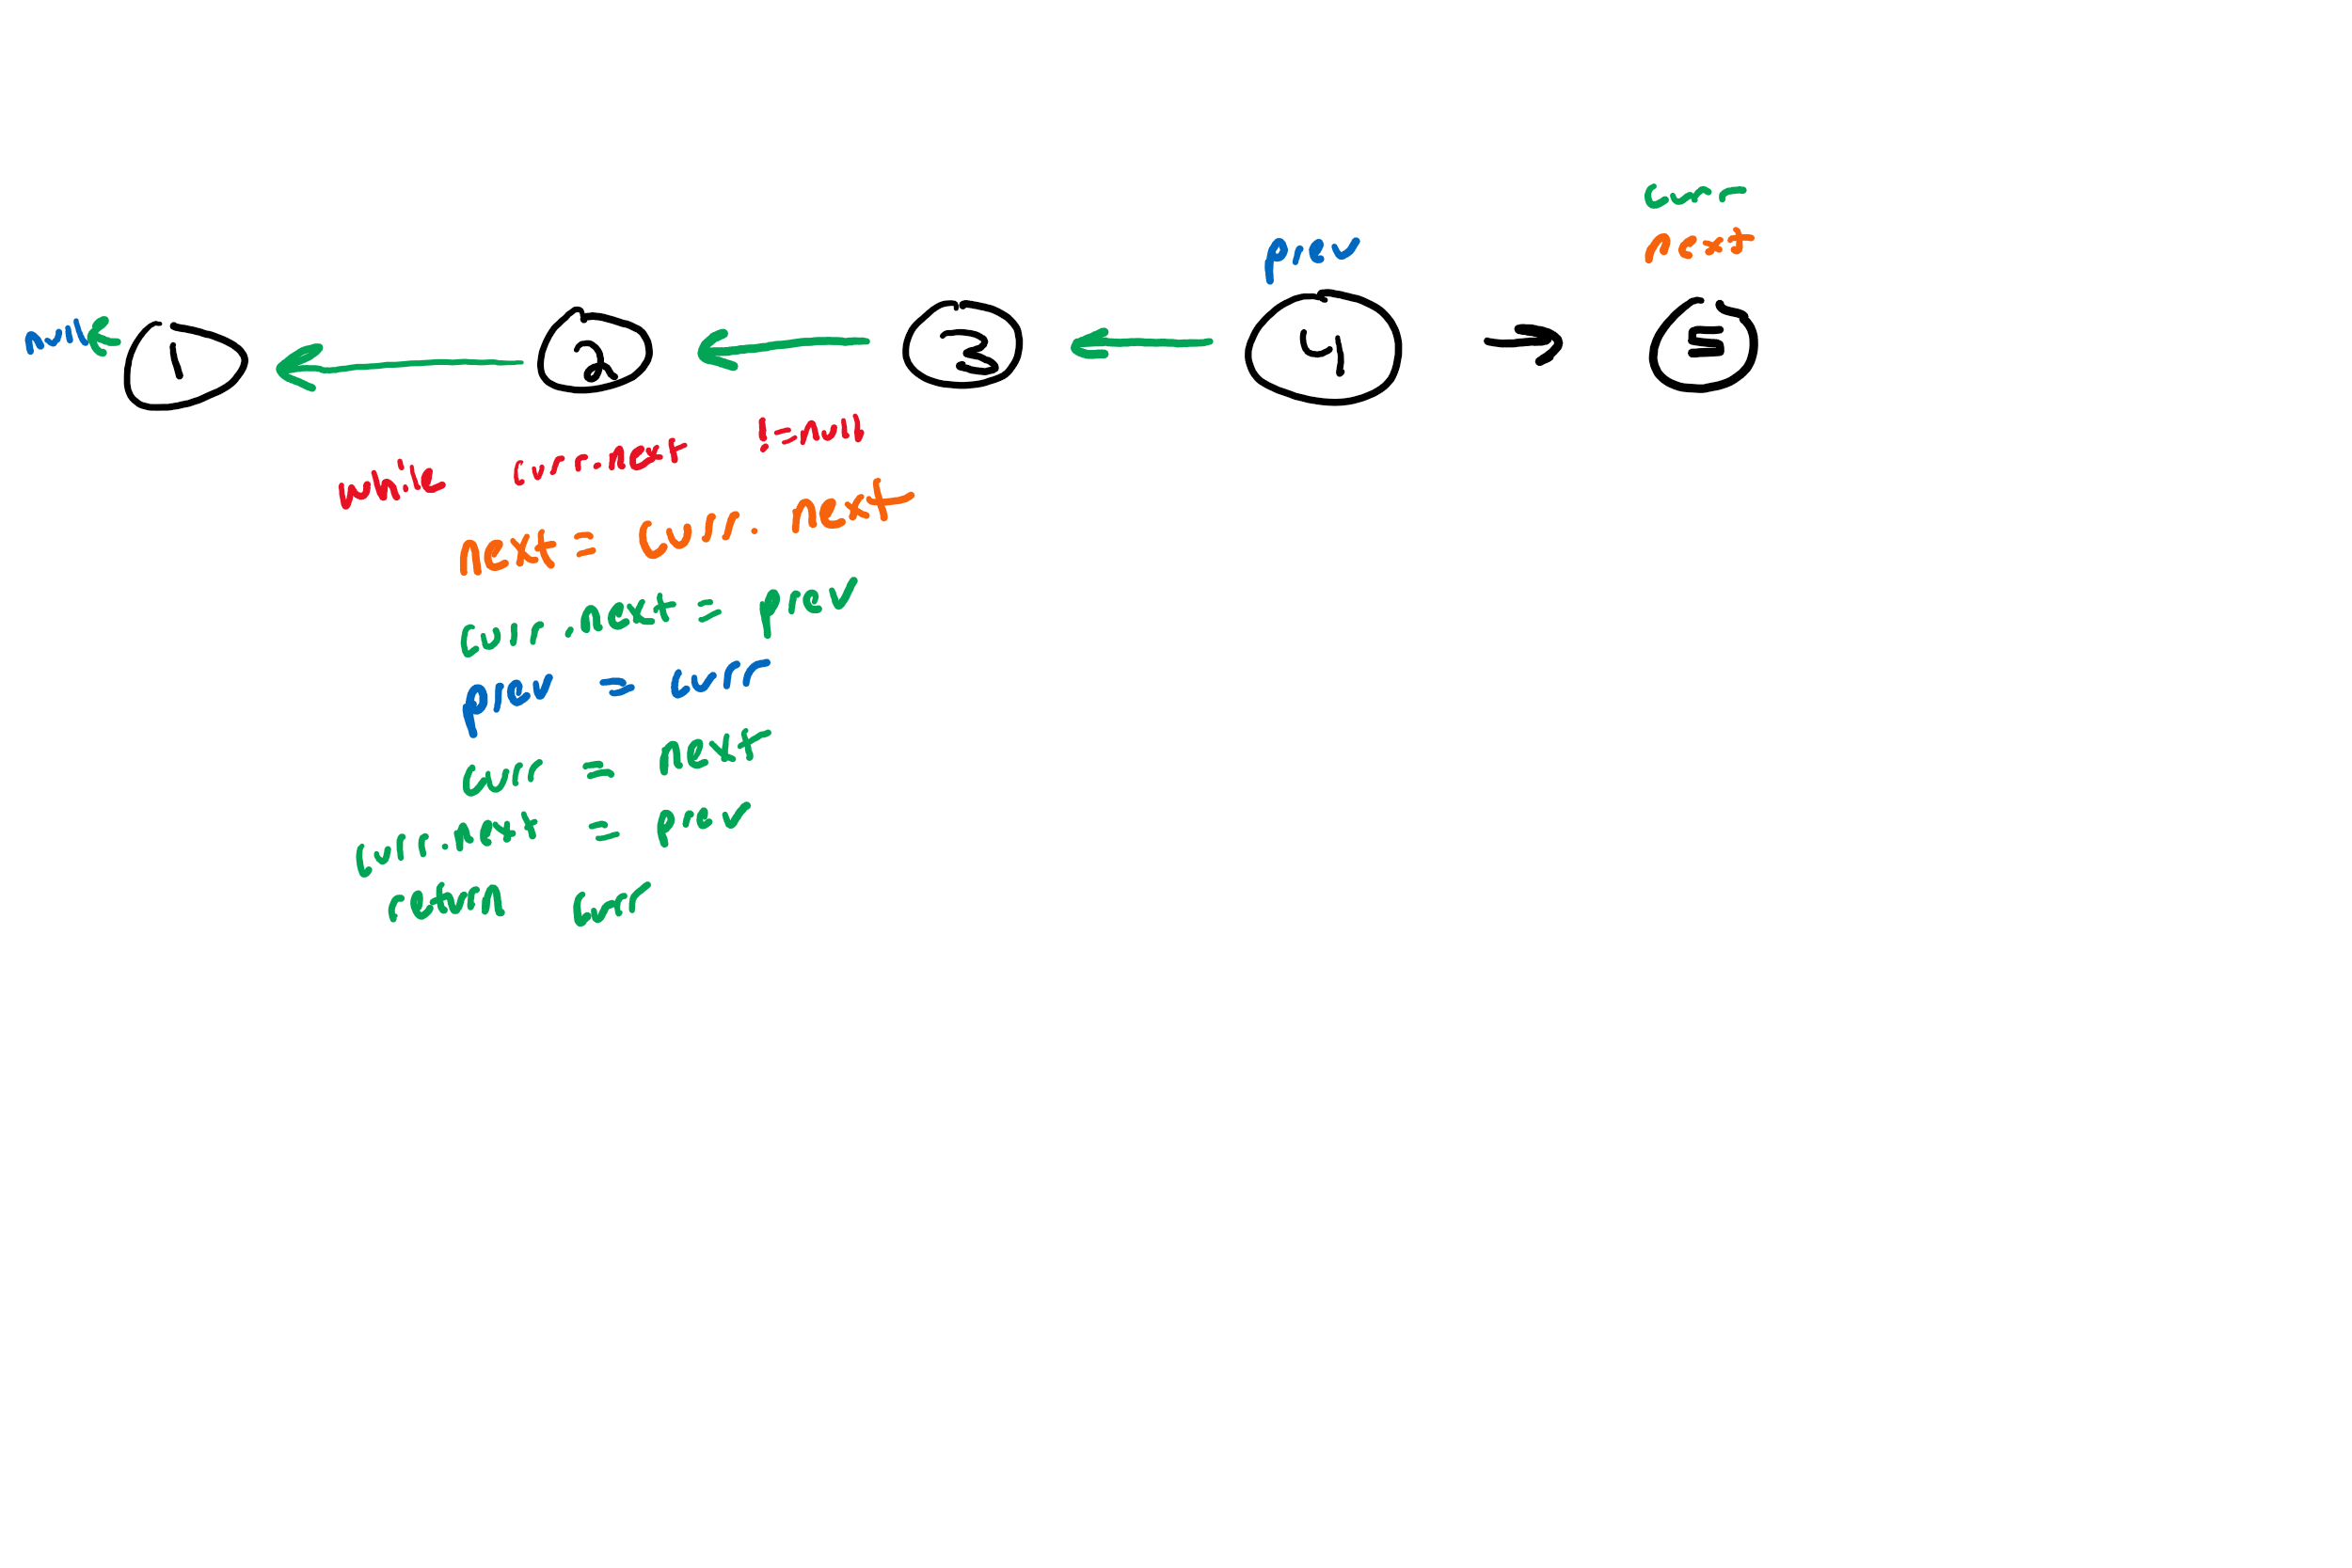 curr
prev next
null 1 2 3 4 5
while curr.next != null
next = curr.next
curr.next = prev
prev = curr
curr = next
curr.next = prev
return curr